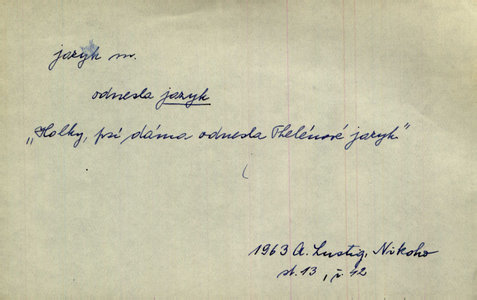 jazyk m.
odnesla jazyk
„Holky, psí dáma odnesla Thelénové jazyk."
1963 A. Lustig, Nikoho
st. 13, ř. 42